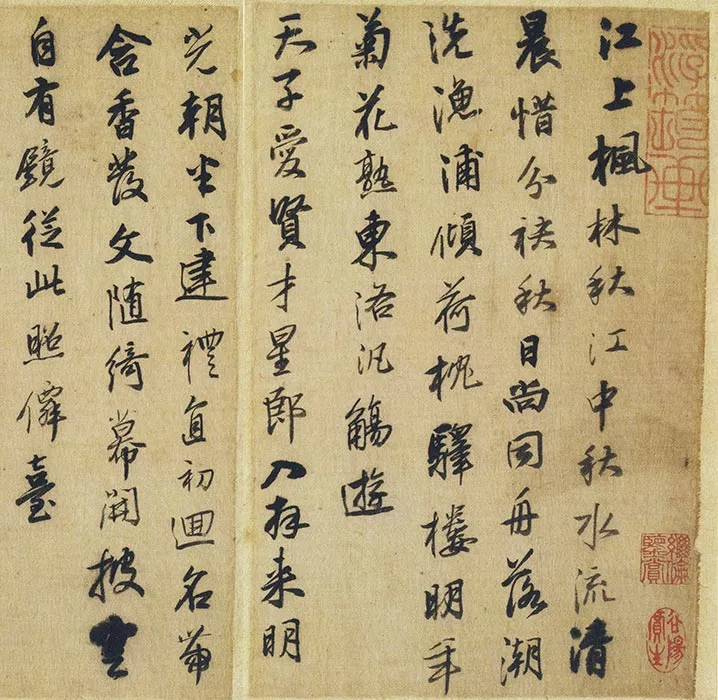 江上楓林秋江中秋水流清
晨惜分袂秋日尚同舟落潮
洗漁浦傾荷枕驛樓明年
菊花熟東洛汎觴遊
天子愛賢才星郎入拜来明
光朝半下建禮直初迴名带
含香發文隨綺幕開披雲
自有鏡從此照僊臺